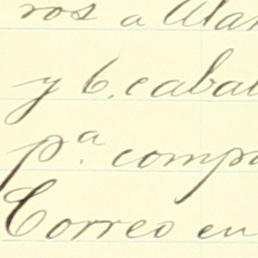 ros a Alar
y 6. cabal
p.ª compa
Correo en